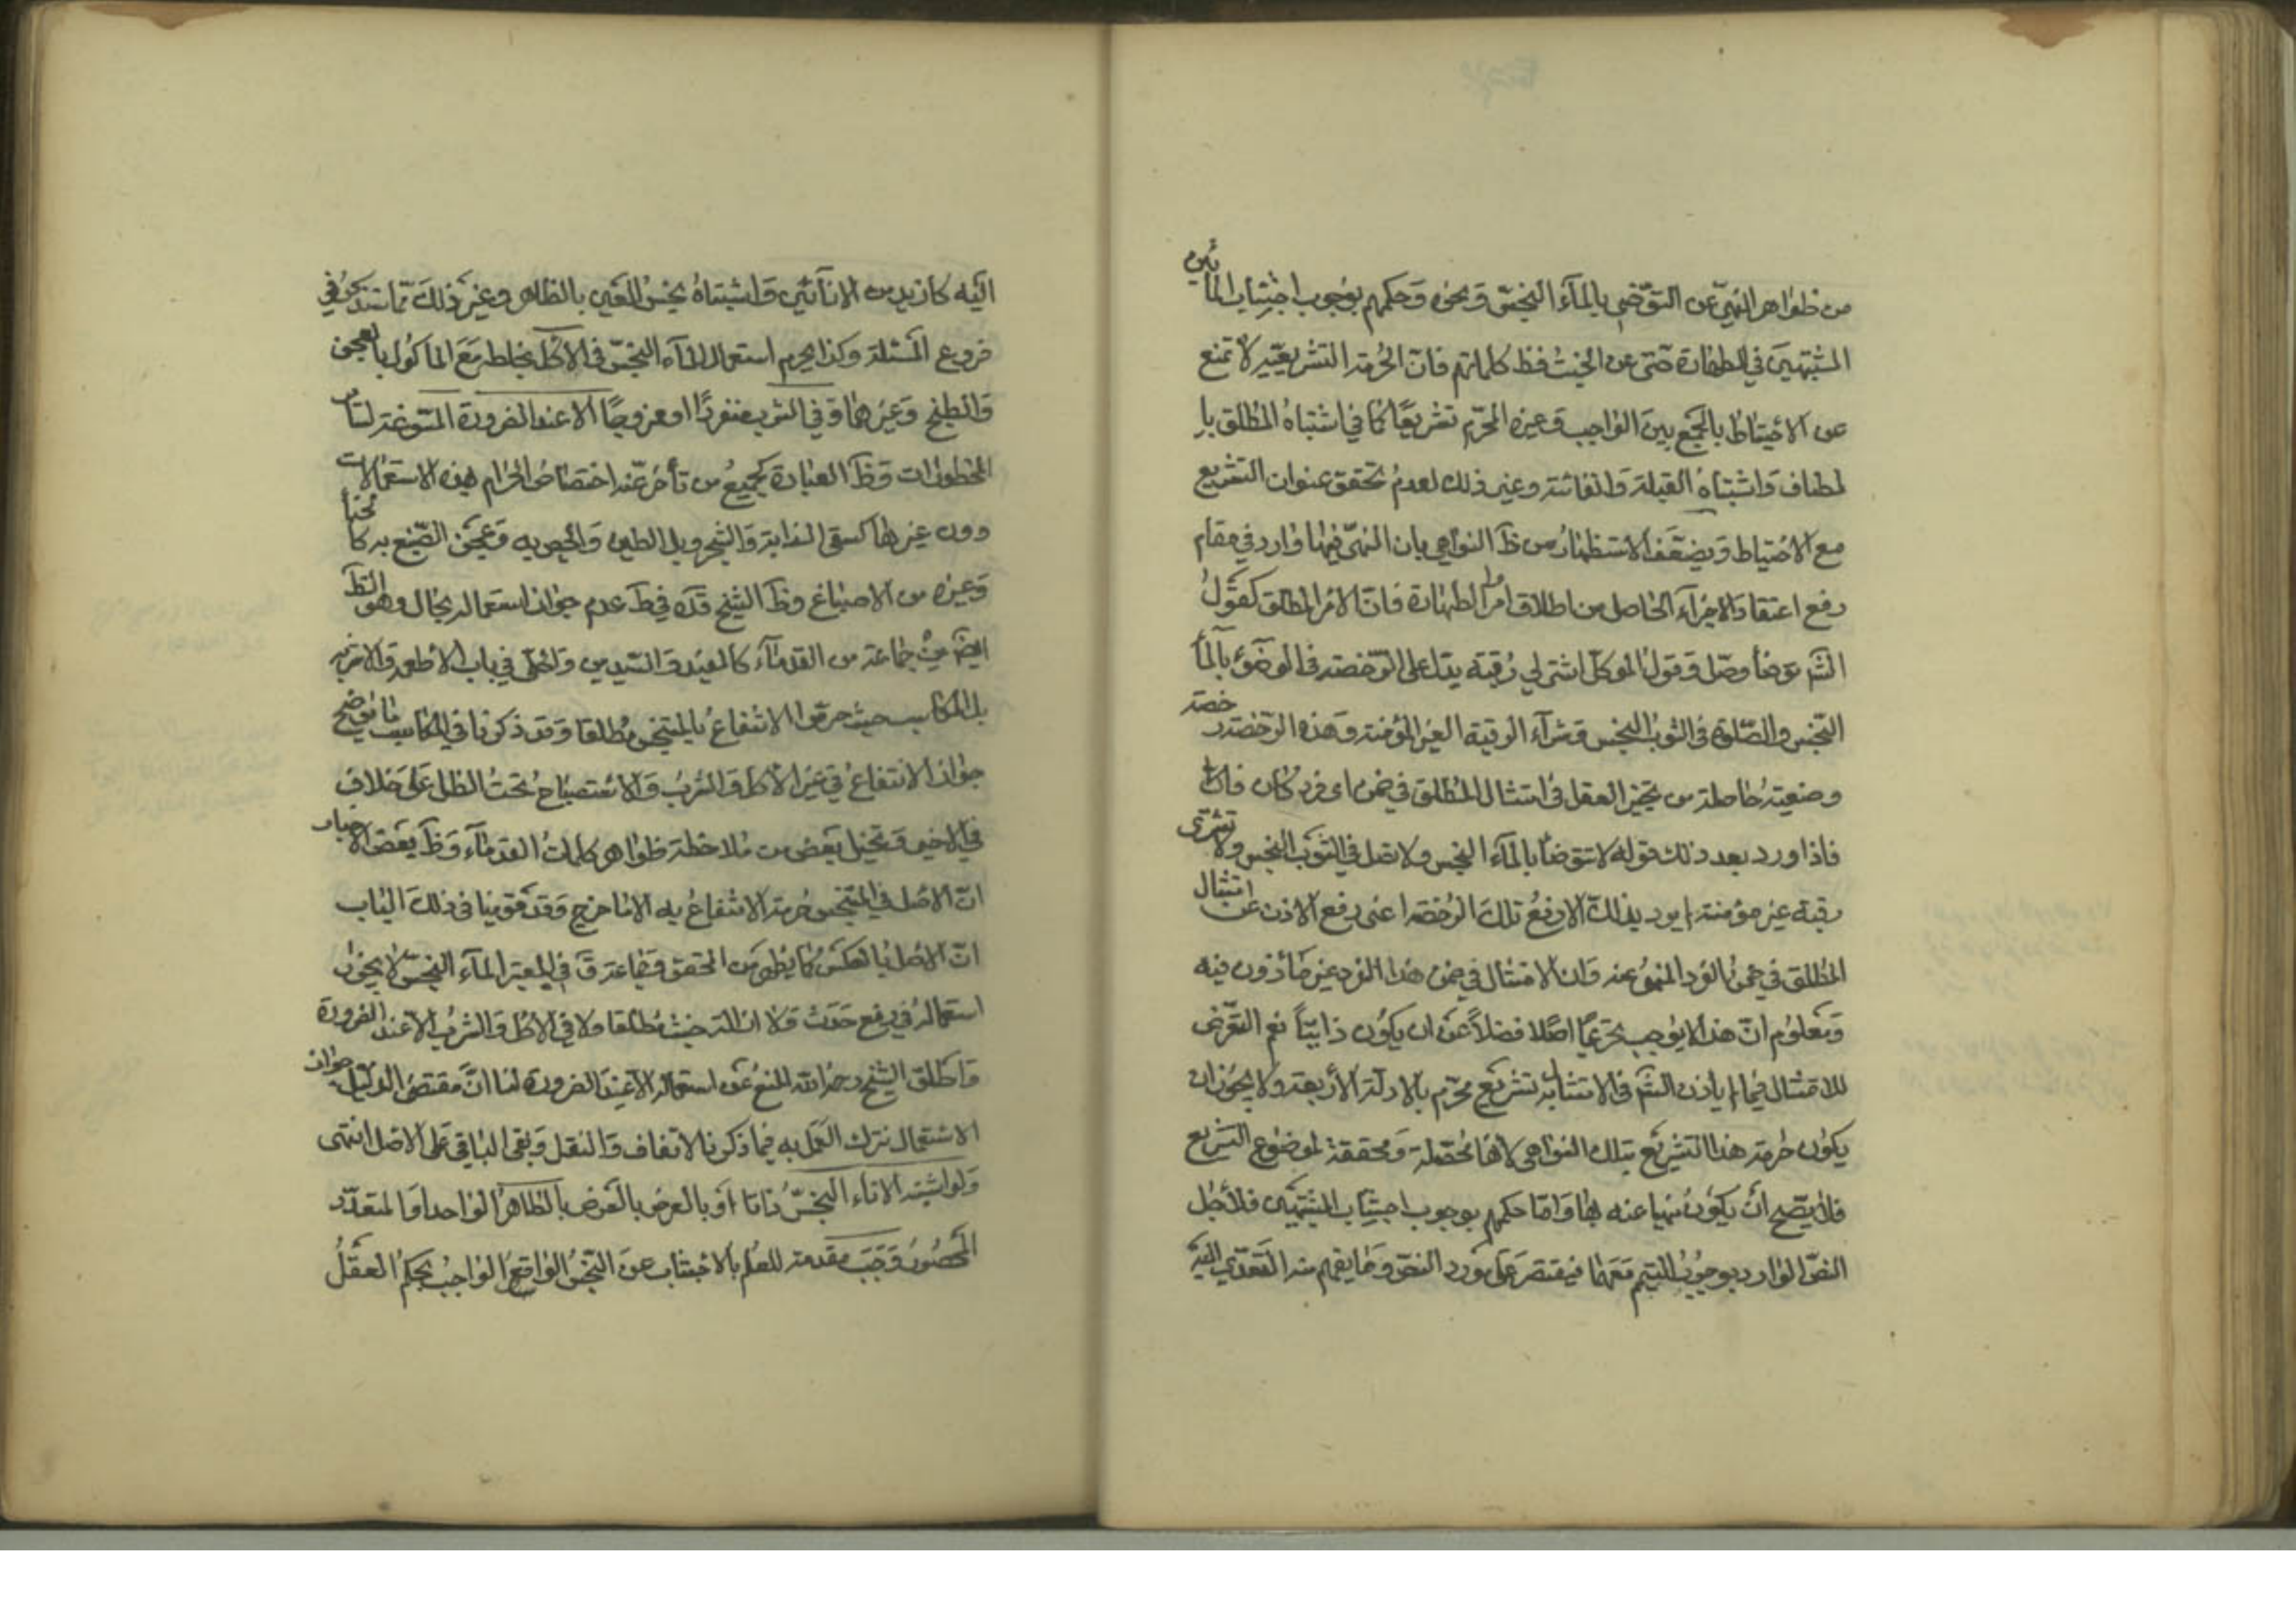 من ظواهر النهي عن التوضي بالماء النجس ونحوه وحكمهم بوجوب اجتناب المائين
المشتبهين في الطهارة حتى عن الخبث فظ كلماتهم فان الحرمة التشريعية لا تمنع
عن الاحتياط بالجمع بين الواجب وغيره المحرم تشريعًا كما في اشتباه المطلق با
لمضاف واشتباه القبلة والفائتة وغير ذلك لعدم تحقق عنوان التشريع
مع الاحتياط ويضعف الاستظهار من ظ النواهي بان النهي فيها وارد في مقام
رفع اعتقاد الاجزاء الحاصل من اطلاق امر الطهارة فان الامر المطلق كقول
الشم توضأ وصل وقول الموكل اشتر لي رقبة يدل على الرخصة في الوضوء بالماء
النجس والصلوة في الثوب النجس وشراء الرقبة الغير المؤمنة وهذه الرخصة رخصة
وضعية حاصلة من تخيير العقل في امتثال المطلق في ضمن اى فرد كان
فاذا ورد بعد ذلك قوله لا تتوضأ بالماء النجس ولا تصل في الثوب النجس ولا تشترى
رقبة غير مؤمنة لم يرد بذلك الا رفع تلك الرخصة اعنى رفع الاذن عن امتثال
المطلق في ضمن الفرد المنهي عنه وان الامتثال في ضمن هذا الفرد غير مأذون فيه
ومعلوم ان هذا لا يوجب تحريمًا اصلا فضلاً عن ان يكون ذاتيًا نعم التعرض
للامتثال فيما لم ياذن الشم في الامتثال به تشريع محرم بالادلة الأربعة ولا يجوز ان
يكون حرمة هذا التشريع بتلك النواهي لانها محصلة ومحققة لموضوع التشريع
فلا يصح ان يكون منهيا عنه بها واما حكمهم بوجوب اجتناب المشتبهين فلأجل
النص الوارد بوجوب التيمم معهما فيقتصر على مورد النص وما يفهم منه التعدي اليه
اليه كازيد من الانائين واشتباه نجس العين بالظاهر وغير ذلك مما ستذكر في
فروع المسئلة وكذا يحرم استعمال الماء النجس في الاكل بخلطه مع المأكول بالعجن
والطبخ وغيرهما وفي الشرب منفردًا او ممزوجًا الا عند الضرورة المسوغة لسائر
المحظورات وظ العبارة كجميع من تأخر عنه اختصاص الحرام بهذه الاستعمالات
دون غيرها كسقى الدابة والشجر وبل الطين والجص به وعجن الصبغ به كالحناء
وغيره من الاصباغ وظ الشيخ قده في ط عدم جواز استعماله بحال وهو الظ
ايضًا من جماعة من القدماء كالمفيد والسيدين والحلى في باب الاطعمة والاشربة
بل المكاسب حيث حرموا الانتفاع بالمتنجس مطلقا وقد ذكرنا في المكاسب ما يوضح
جواز الانتفاع في غير الاكل والشرب والاستصباح تحت الظل على خلاف
في الاخير وتخيل بعض من ملاحظة ظواهر كلمات القدماء وظ بعض الاخبار
ان الاصل في المتنجس حرمة الانتفاع به الا ما خرج وقد قوينا في ذلك الباب
ان الاصل بالعكس كما يظهر من المحقق وجماعة ق في المعتبر الماء النجس لا يجوز
استعماله في رفع حدث ولا ازالة خبث مطلقا ولا في الاكل والشرب الا عند الضرورة
واطلق الشيخ رحمه الله المنع عن استعماله الا عند الضرورة لنا ان مقتضى الدليل جواز
الاستعمال نترك العمل به فيما ذكرنا الاتفاق والنقل وبقى الباقي على الاصل انتهى
ولو اشتبه الاناء النجس ذاتا او بالعرض بالعرض بالظاهر الواحد او المتعدد
المحصور وجب مقدمة للعلم بالاجتناب عن النجس الواقع الواجب بحكم العقل